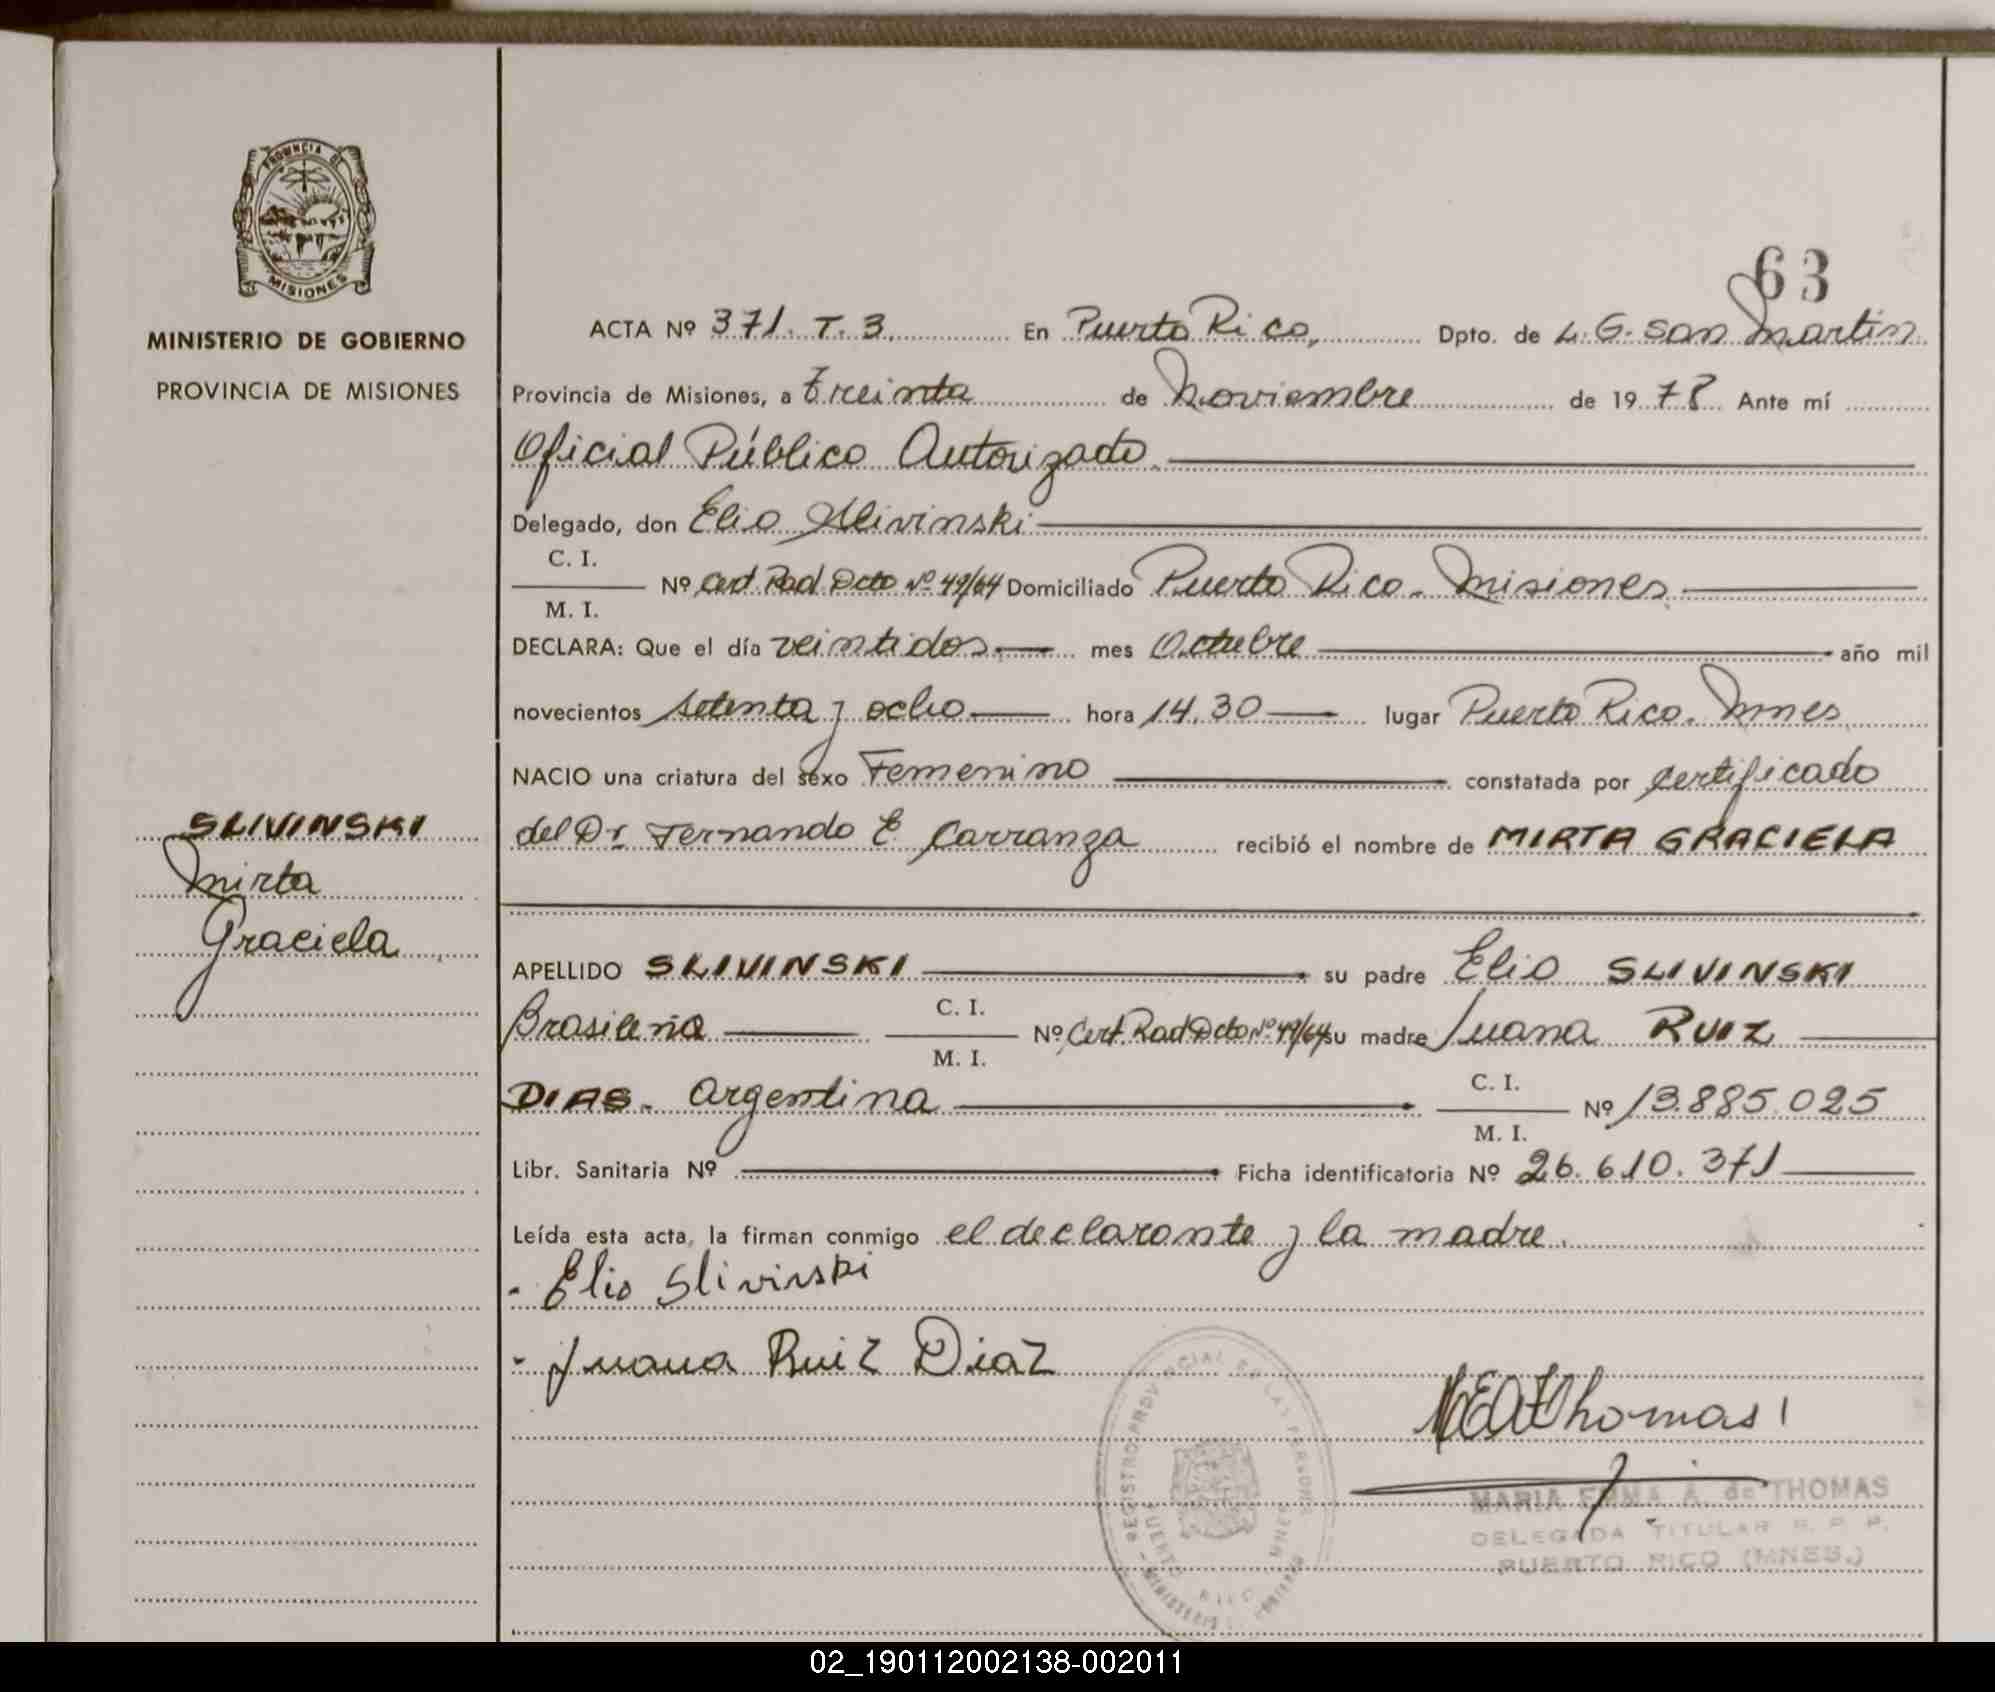 PROVINCIA DE
MISIONES
MINISTERIO DE GOBIERNO
PROVINCIA DE MISIONES
SLIVINSKI
Mirta
Graciela
63
ACTA Nº 371. T. 3. En Puerto Rico, Dpto. de L. G. San Martin
Provincia de Misiones, a treinta de Noviembre de 1978 Ante mí
Oficial Público Autorizado.
Delegado, don Elio Slivinski
C. I.
Nº Cert. Rad. Dcto Nº 49/64 Domiciliado Puerto Rico. Misiones
M. I.
DECLARA: Que el día veintidos mes Octubre año mil
novecientos setenta y ocho hora 14.30 lugar Puerto Rico. Mnes
NACIO una criatura del sexo Femenino constatada por certificado
del Dr Fernando E Carranza recibió el nombre de MIRTA GRACIELA
APELLIDO SLIVINSKI su padre Elio SLIVINSKI
C. I.
Brasileña Nº Cert. Rad Dcto Nº 49/64 su madre Juana RUIZ
M. I.
C. I.
DIAS. Argentina Nº 13.885.025
M. I.
Libr. Sanitaria Nº Ficha identificatoria Nº 26.610.371
Leída esta acta, la firman conmigo el declarante y la madre.
- Elio Slivinski
- Juana Ruiz Diaz
REGISTRO PROVINCIAL DE LAS PERSONAS
PUERTO RICO MNES
MEAThomas
MARIA EMMA A. de THOMAS
DELEGADA TITULAR R. P. P.
PUERTO RICO (MNES.)
02_190112002138-002011